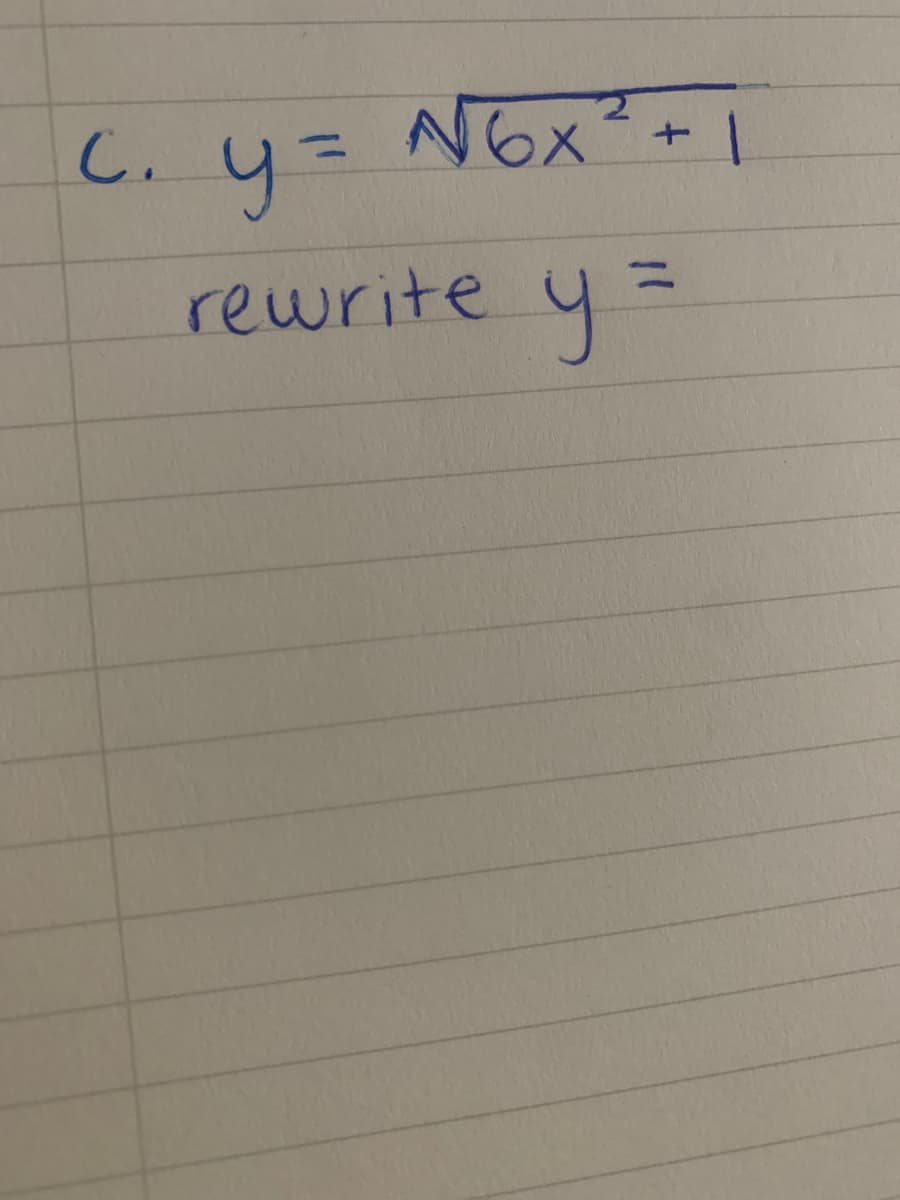 C. y = √6x² + 1
rewrite y =